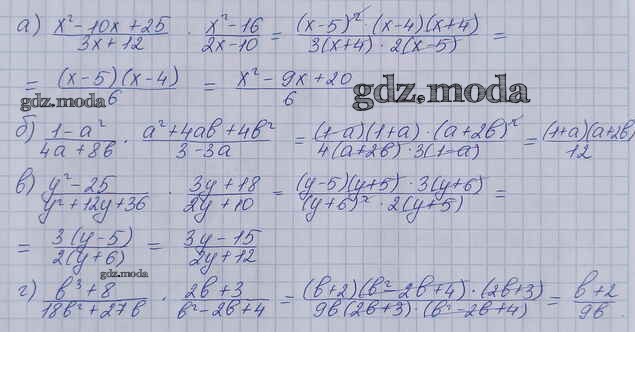 а) x²-10x+25/3x+12 · x²-16/2x-10 = (x-5)²·(x-4)(x+4)/3(x+4)·2(x-5) =
= (x-5)(x-4)/6 = x²-9x+20/6
gdz.moda
gdz.moda
б) 1-a²/4a+8b · a²+4ab+4b²/3-3a = (1-a)(1+a)·(a+2b)²/4(a+2b)·3(1-a) = (1+a)(a+2b)/12
в) y²-25/y²+12y+36 · 3y+18/2y+10 = (y-5)(y+5)·3(y+6)/(y+6)²·2(y+5) =
= 3(y-5)/2(y+6) = 3y-15/2y+12
gdz.moda
г) b³+8/18b²+27b · 2b+3/b²-2b+4 = (b+2)(b²-2b+4)·(2b+3)/9b(2b+3)·(b²-2b+4) = b+2/9b.